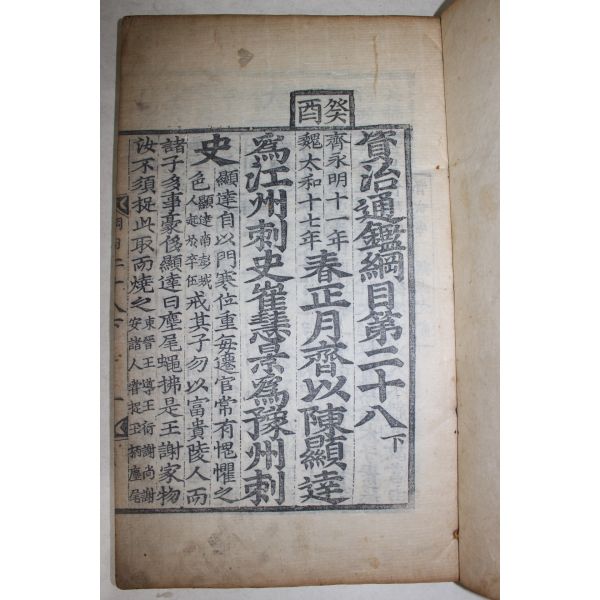 癸酉
資治通鑑綱目第二十八下
齊永明十一年
魏太和十七年
春正月齊以陳顯達
爲江州刺史崔慧景爲豫州刺
史
顯達自以門寒位重毎遷官常有愧懼之
色
顯達南彭城
人起於卒伍
戒其子勿以富貴陵人而
諸子多事豪侈顯達曰麈尾蠅拂是王謝家物
汝不須捉此取而燒之
東晉王導王衍謝尚謝
安諸人捉玉柄麈尾